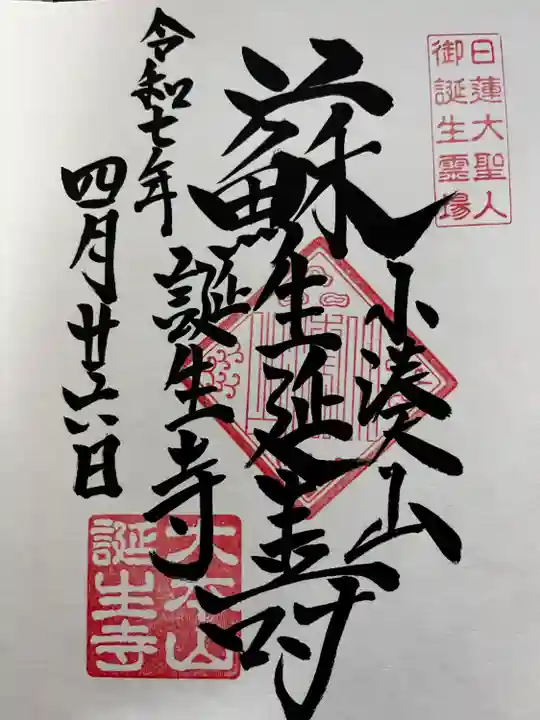 日蓮大聖人
御誕生霊場
小湊山
蘇生延壽
誕生寺
令和七年
四月廿六日
大本山
誕生寺